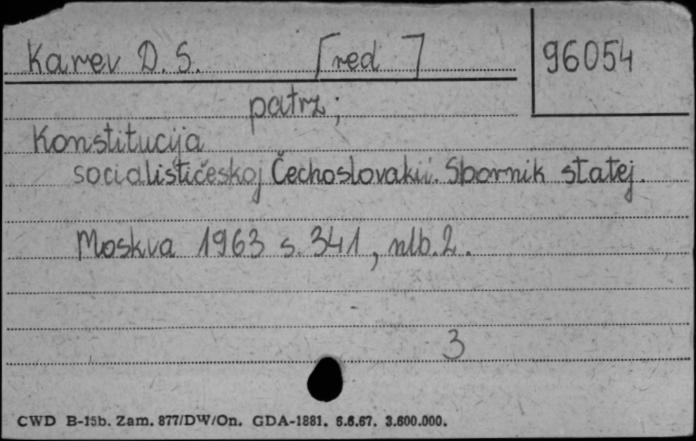 Karev D. S. [red]
96054
patrz;
Konstitucija
socialističeskoj Čechoslovakii. Sbornik statej.
Moskva 1963 s. 341, nlb. 2.
3
CWD B-15b. Zam. 877/DW/On. GDA-1881. 6.6.67. 3.600.000.